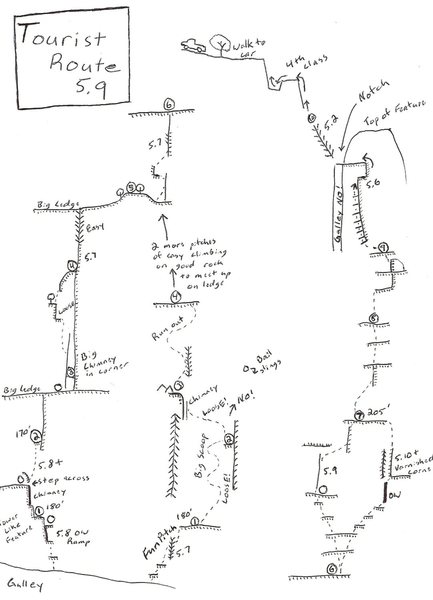 Tourist
Route
5.9
walk to
car
4th class
5.2
Notch
Top of Feature
Galley NO!
5.6
9
8
7
205'
5.9
5.10+
Varnished
Corner
OW
6
6
5.7
5
Big Ledge
Easy
5.7
4
Loose
Big
Chimney
in corner
3
Big Ledge
2
170'
5.8+
step across
chimney
1
180'
Tower
Like
Feature
5.8 OW
Ramp
Galley
2 more pitches
of easy climbing
on good rock
to meet up
on ledge
4
Run out
3
chimney
Loose!
NO!
Bail
slings
2
Big Scoop
Loose!
180'
1
Fun Pitch
5.7